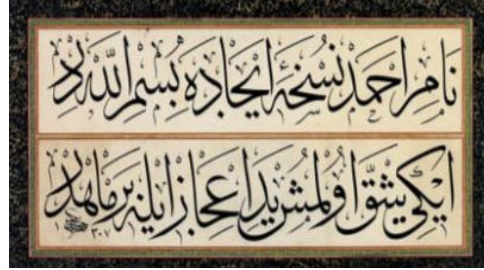 نام احمد نسخۀ ایجاده بسم الله در
ایكی شقّ اولمش ید اعجاز ایله بر ماهدر
۱۳۰۷